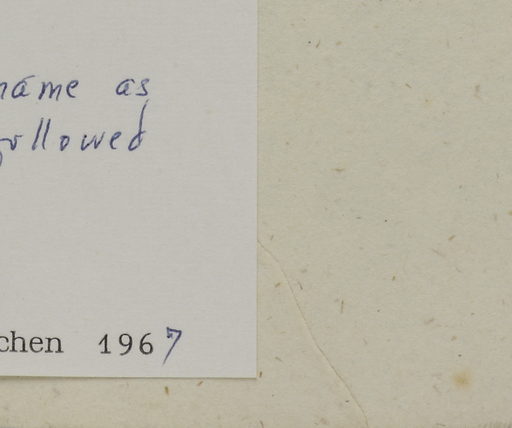 name as
followed
chen 1967